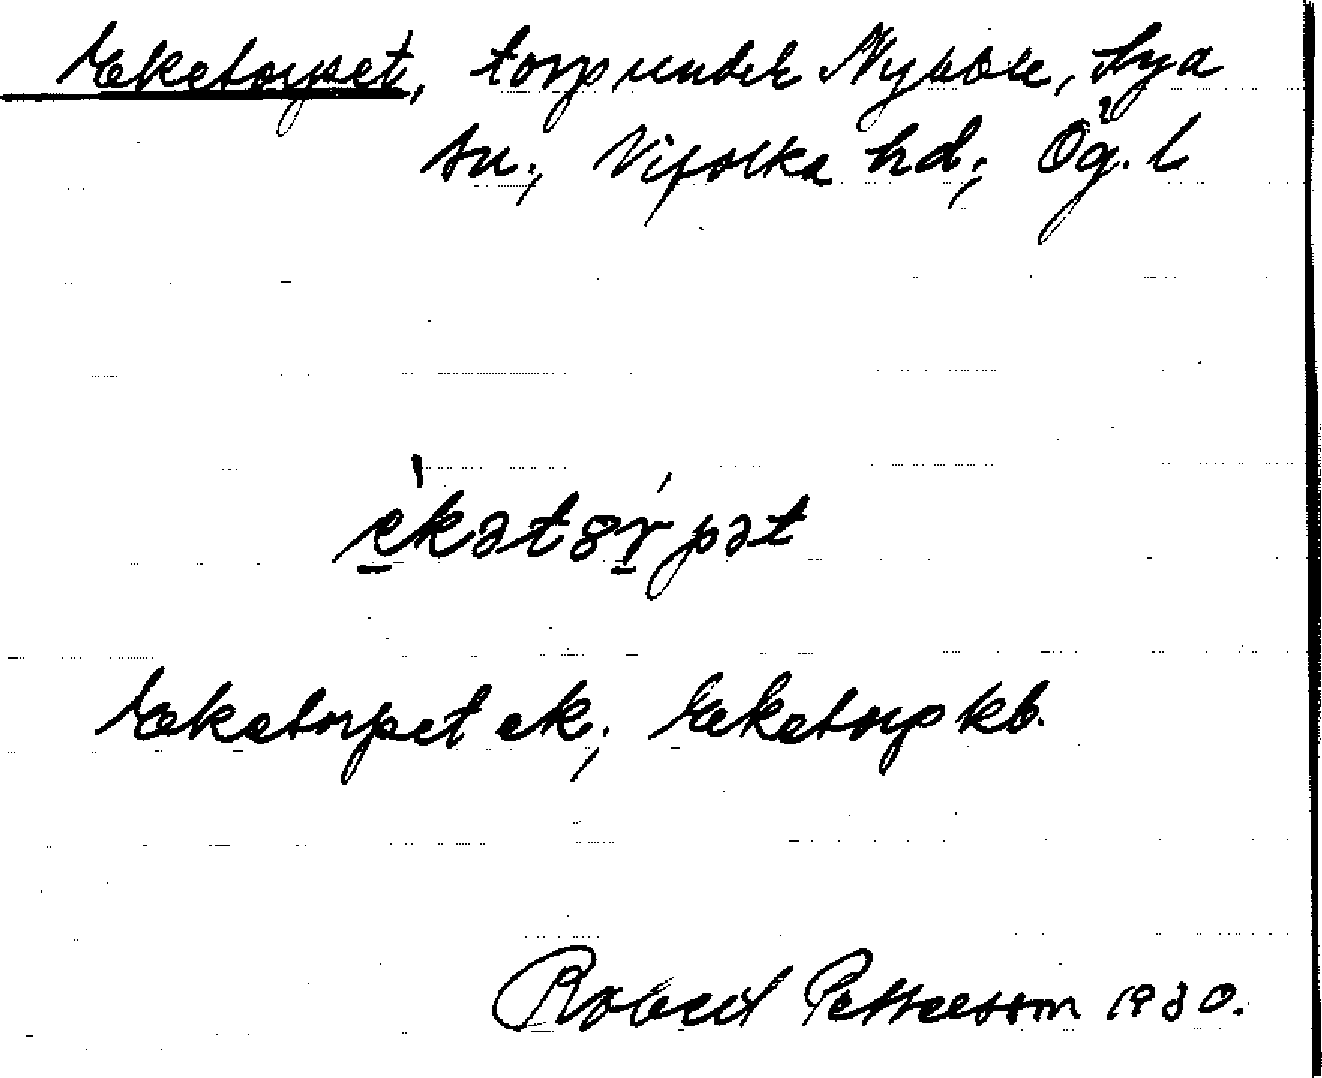 Eketorpet, torp under Nybble, Sya
sn.; Vifolka hd.; Ög. l
e̠̍kətȣr̠ṕət
Eketorpet ek.; Eketorp kb.
Robert Pettersson 1930.